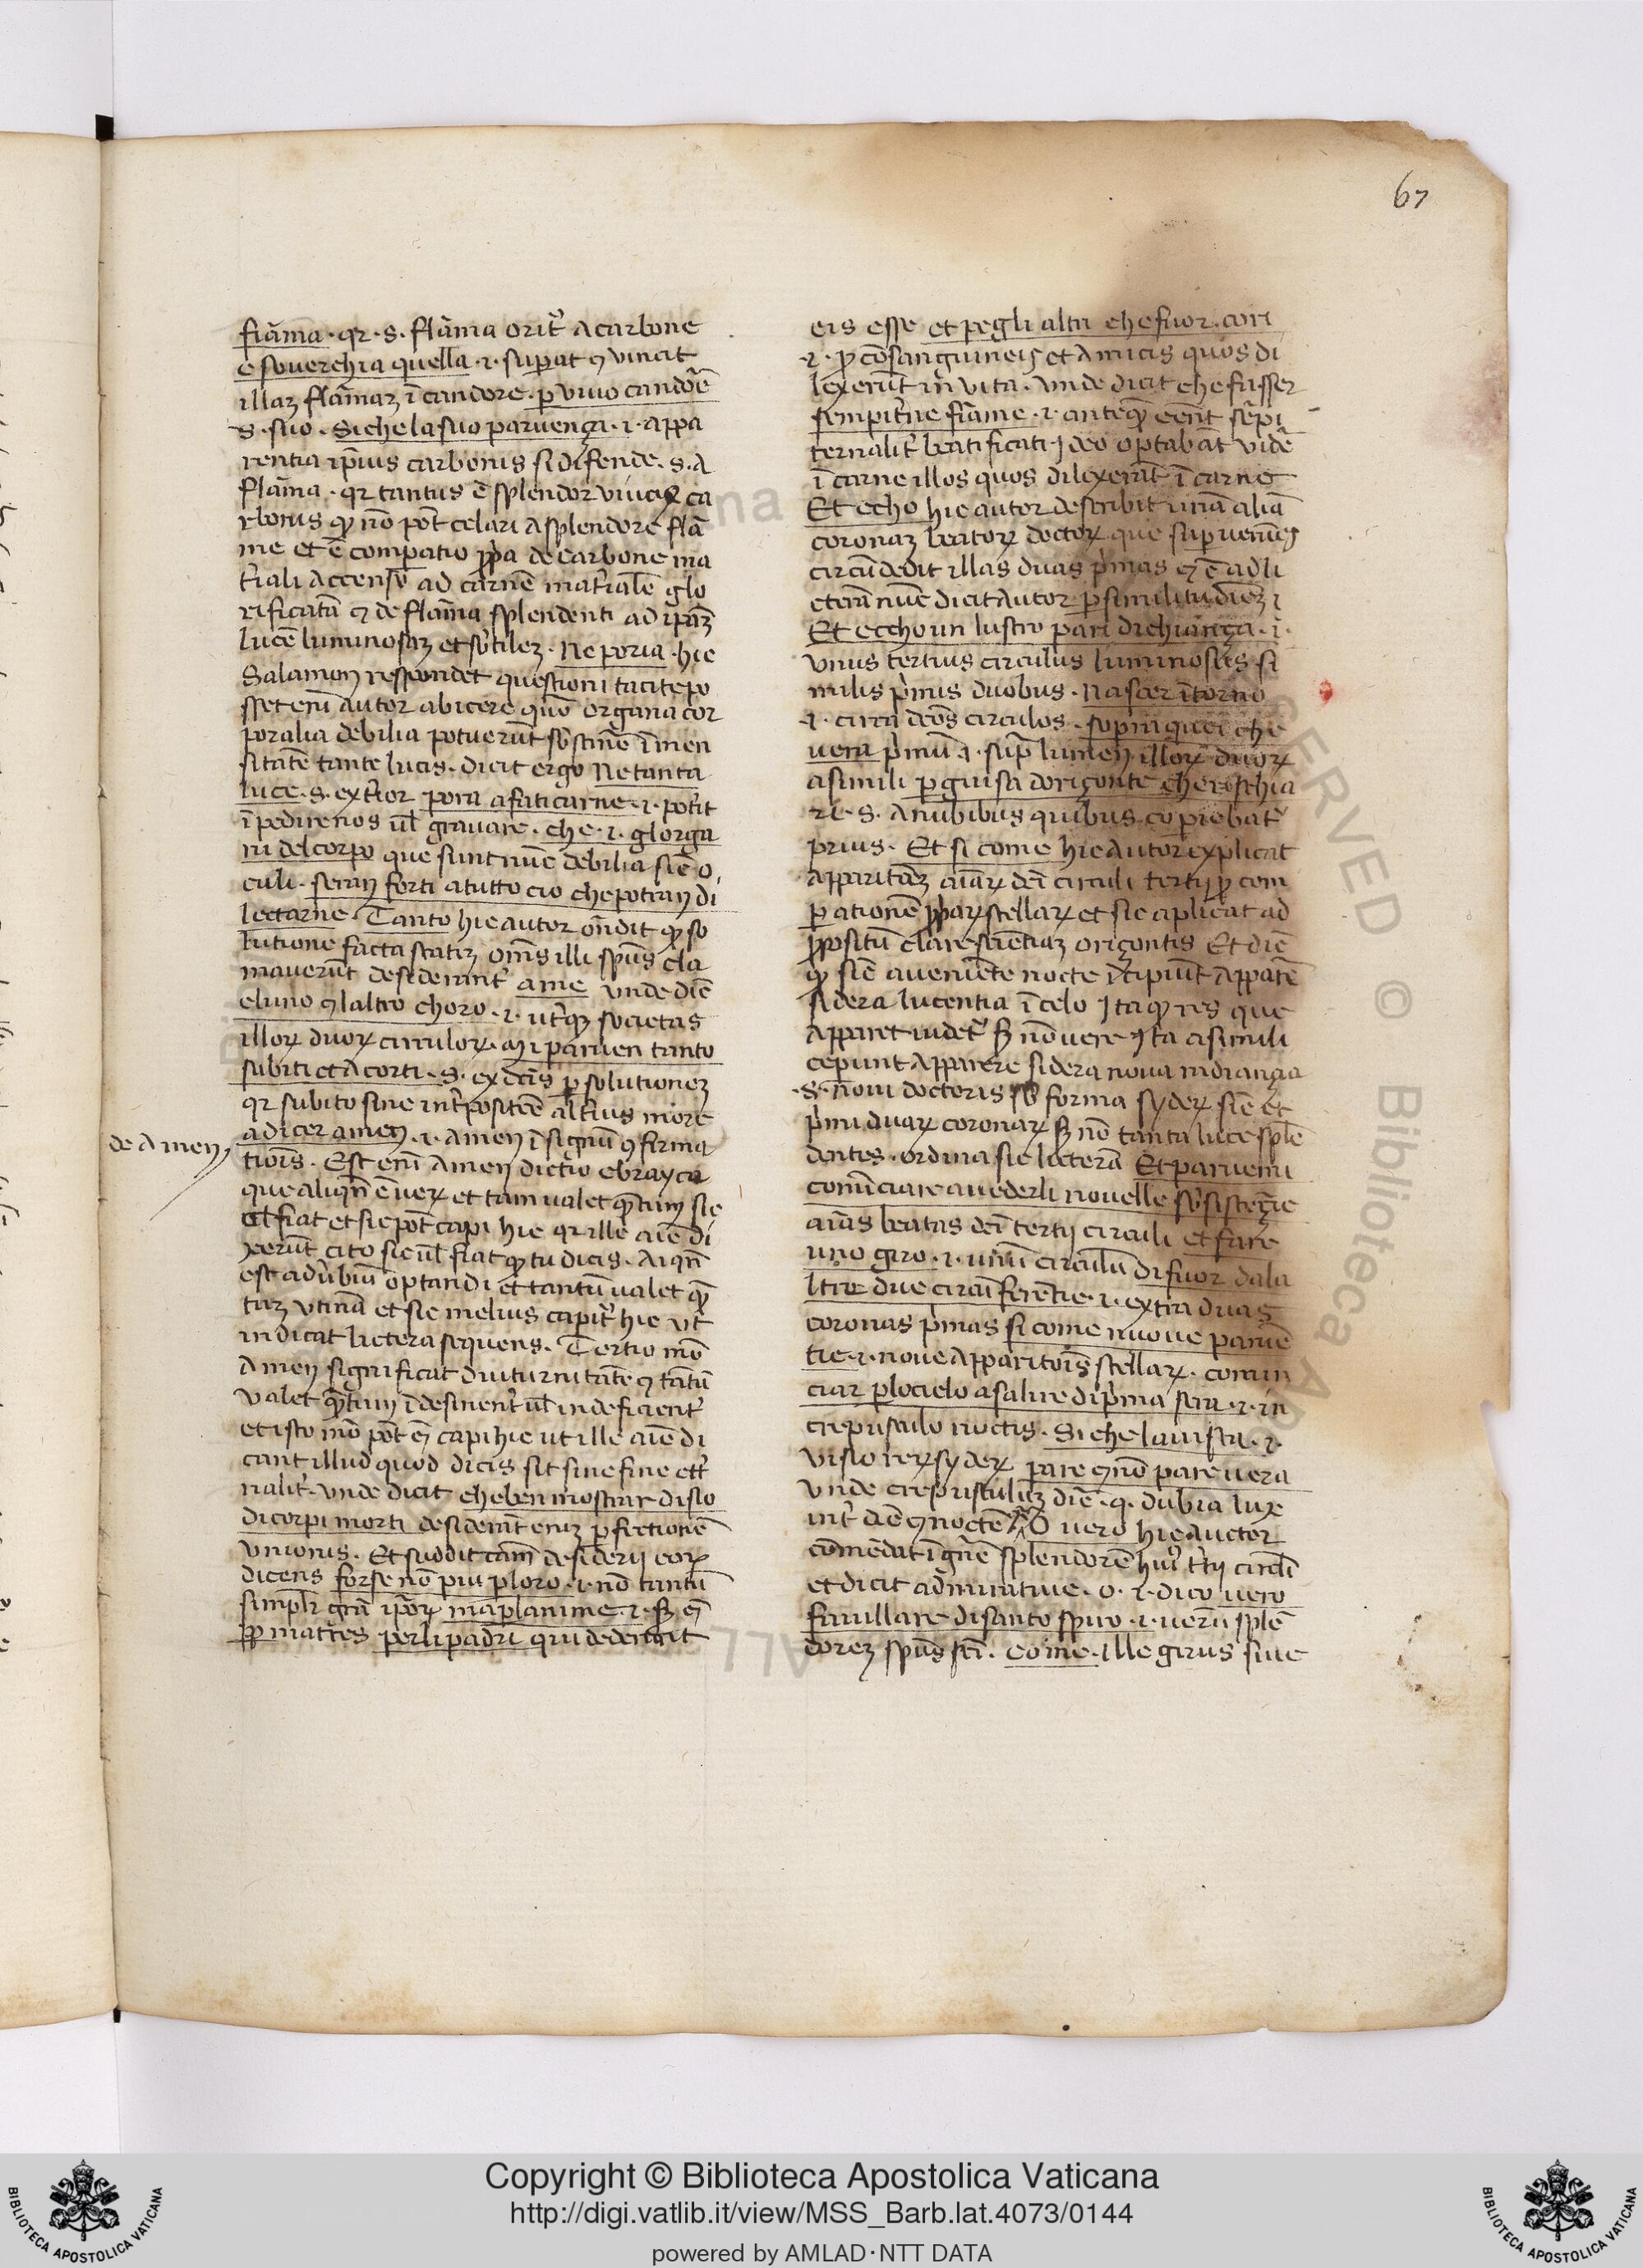 67
fiāma · qr · s · flāma orit᷑ a carbone
e soverchia quella · i · suꝑat ꝯ vincit
illaꝫ flāmaꝫ ī candore · ꝑ vivo candorē
s · suo · Siche la suo parvenza · i · appa
rentia ip̄ius carbonis si difende · s · a
flāma · qr tantus ē splendor vivus ca
rbonis ꝙ nō pōt celari a splendore flā
me et ē comꝑatio ꝓpa de carbone ma
t᷑iali accenso ad carnē mat᷑ialē glo
rificatā ꝯ de flāma splendenti ad ip̄aꝫ
lucē luminosaꝫ et sʳtileꝫ · Ne poria · hic
Salamon respondet questioni tacite po
sset enī autor abicere quō organa cor
poralia debilia potuerūt sʳstinē īmen
sitatē tante lucis · dicit ergo Ne tanta
luce · s · ext᷑ior pora afaticarne · i · pot᷑it
īpedire nos ul̄ gravare · che · i · glorga
ni del corpo que sunt nūc debilia sic̄ o
culi · seran forti a tutto cio che potran di
lectarne · Tanto hic autor on̄dit ꝙ so
lutione facta statiꝫ om̄s illi spūs cla
maverūt desiderant᷑ ame vnde dic̄
eluno ꝯ laltro choro · i · ut᷑qꝫ societas
illoꝝ duoꝝ circuloꝝ · mi parven tanto
subiti et acorti · s · ex dcī̄s ꝑ solutioneꝫ
qr subito sine int᷑positōe alt᷑ius more
a dicer amen · i · amen ī signū ꝯfirma
de Amen
tiōis · Est enī Amen dictio ebrayca
que aliqn̄ ē veꝝ et tam valet quātum sic
ul̄ fiat et sic pōt capi hic qr ille aīe di
xerūt cito sic ul̄ fiat ꝙ tu dicis · Aiqn̄
est adv̄biū optandi et tantū valet quā
taꝫ vtinā et sic melius capit᷑ hic vt
indicat lictera sequens · Tertio mō
Amen significat diuturnitatē ꝯ tātū
valet quātum īdesinent᷑ ul̄ indeficient᷑
et isto mō pōt eꝫ capi hic ut ille aīe di
cant illud quod dicis sit sine fine et᷑
nalit᷑ · vnde dicit che ben mostrar disio
di corpi morti desiderāt eniꝫ ꝑfectionē
vnionis · Et suddit cām desiderij eoꝝ
dicens forse nō piu ꝑ loro · i · nō tantū
simplr̄ grā ip̄oꝝ ma ꝑ la mme · i · sꝫ eꝫ
ꝓp mat᷑es per li padri qui dederūt
eis esse et pegli altri che fuor cari
i · ꝓ cōsanguineis et amicis quos di
lexerūt in vita · vnde dicit che fusser
sempit᷑ne fiāme · i · anteqꝫ eent sēpi
ternalit᷑ beatificati · Ideo optabāt vidē
ī carne illos quos dilexerāt ī carne
Et echo hic autor describit unā aliā
coronaꝫ beatoꝝ doctoꝝ que suꝑveniēs
circūdedit illas duas p᷑mas ꝯ ē ad li
cterā nūc dicit autor ꝑ similitudīeꝫ ·
Et eccho un lustro pari di chiarēza · i ·
vnus tertius circulus luminosus si
milis p᷑mis duobus · Nascer ītorno
· i · circa dcō̄s circulos · sopra quel che
vera p᷑mū · i · supra lumen illoꝝ duoꝝ
a simili ꝑ guisa dorizonte che rischia
ri · s · a nubibus quibus copriebat᷑
prius · Et si come hic autor explicat
apparitōeꝫ aīaꝝ dc̄i circuli tertij ꝓ com
ꝑationē ꝓpaꝝ stellaꝝ et sic aplicat ad
ꝓpositū clarescentiaꝫ orizontis Et dic̄
ꝙ sic̄ a veniēte nocte īcipiūt apparē
sidera lucentia ī celo Ita ꝙ res que
apparet videt᷑ sꝫ nō vere Ita a simili
cepunt apparere sidera nova
· s · novi doctoris sʳ forma sydeꝝ sic̄ et
p᷑mi duaꝝ coronaꝝ sꝫ nō tanta luce splē
dentes · ordina sic licterā Et parvemi
comīciare a vederli novelle sʳsistēzie
aīas beatas dc̄i tertij circuli et fare
uno giro · i · unū circulū di fuor dala
ltre due circūferētie · i · extra duas
coronas p᷑mas si come nuove parvē
tie · i · nove apparitōis stellaꝝ · comin
ciar ꝑ lo cielo a salire di p᷑ma sera · i · in
crepusculo noctis · Siche la vista · i ·
visio reꝝ sydeꝝ pare ꝯ nō pare vera
vnde crepusculuꝫ dic̄ · q · dubia lux
int᷑ diē ꝯ noctē O vero hic auctor
cōmēdat īgn̄e splendorē huiꝰ t᷑tij circuli
et dicit admirative · o · i · dico vero
favillare di santo spiro · i · verū splē
doreꝫ spūs scī · come · Ille girus sive
ALL RESERVED © Biblioteca Ap
BIBLIOTECA APOSTOLICA VATICANA
Copyright © Biblioteca Apostolica Vaticana
http://digi.vatlib.it/view/MSS_Barb.lat.4073/0144
powered by AMLAD·NTT DATA
BIBLIOTECA APOSTOLICA VATICANA